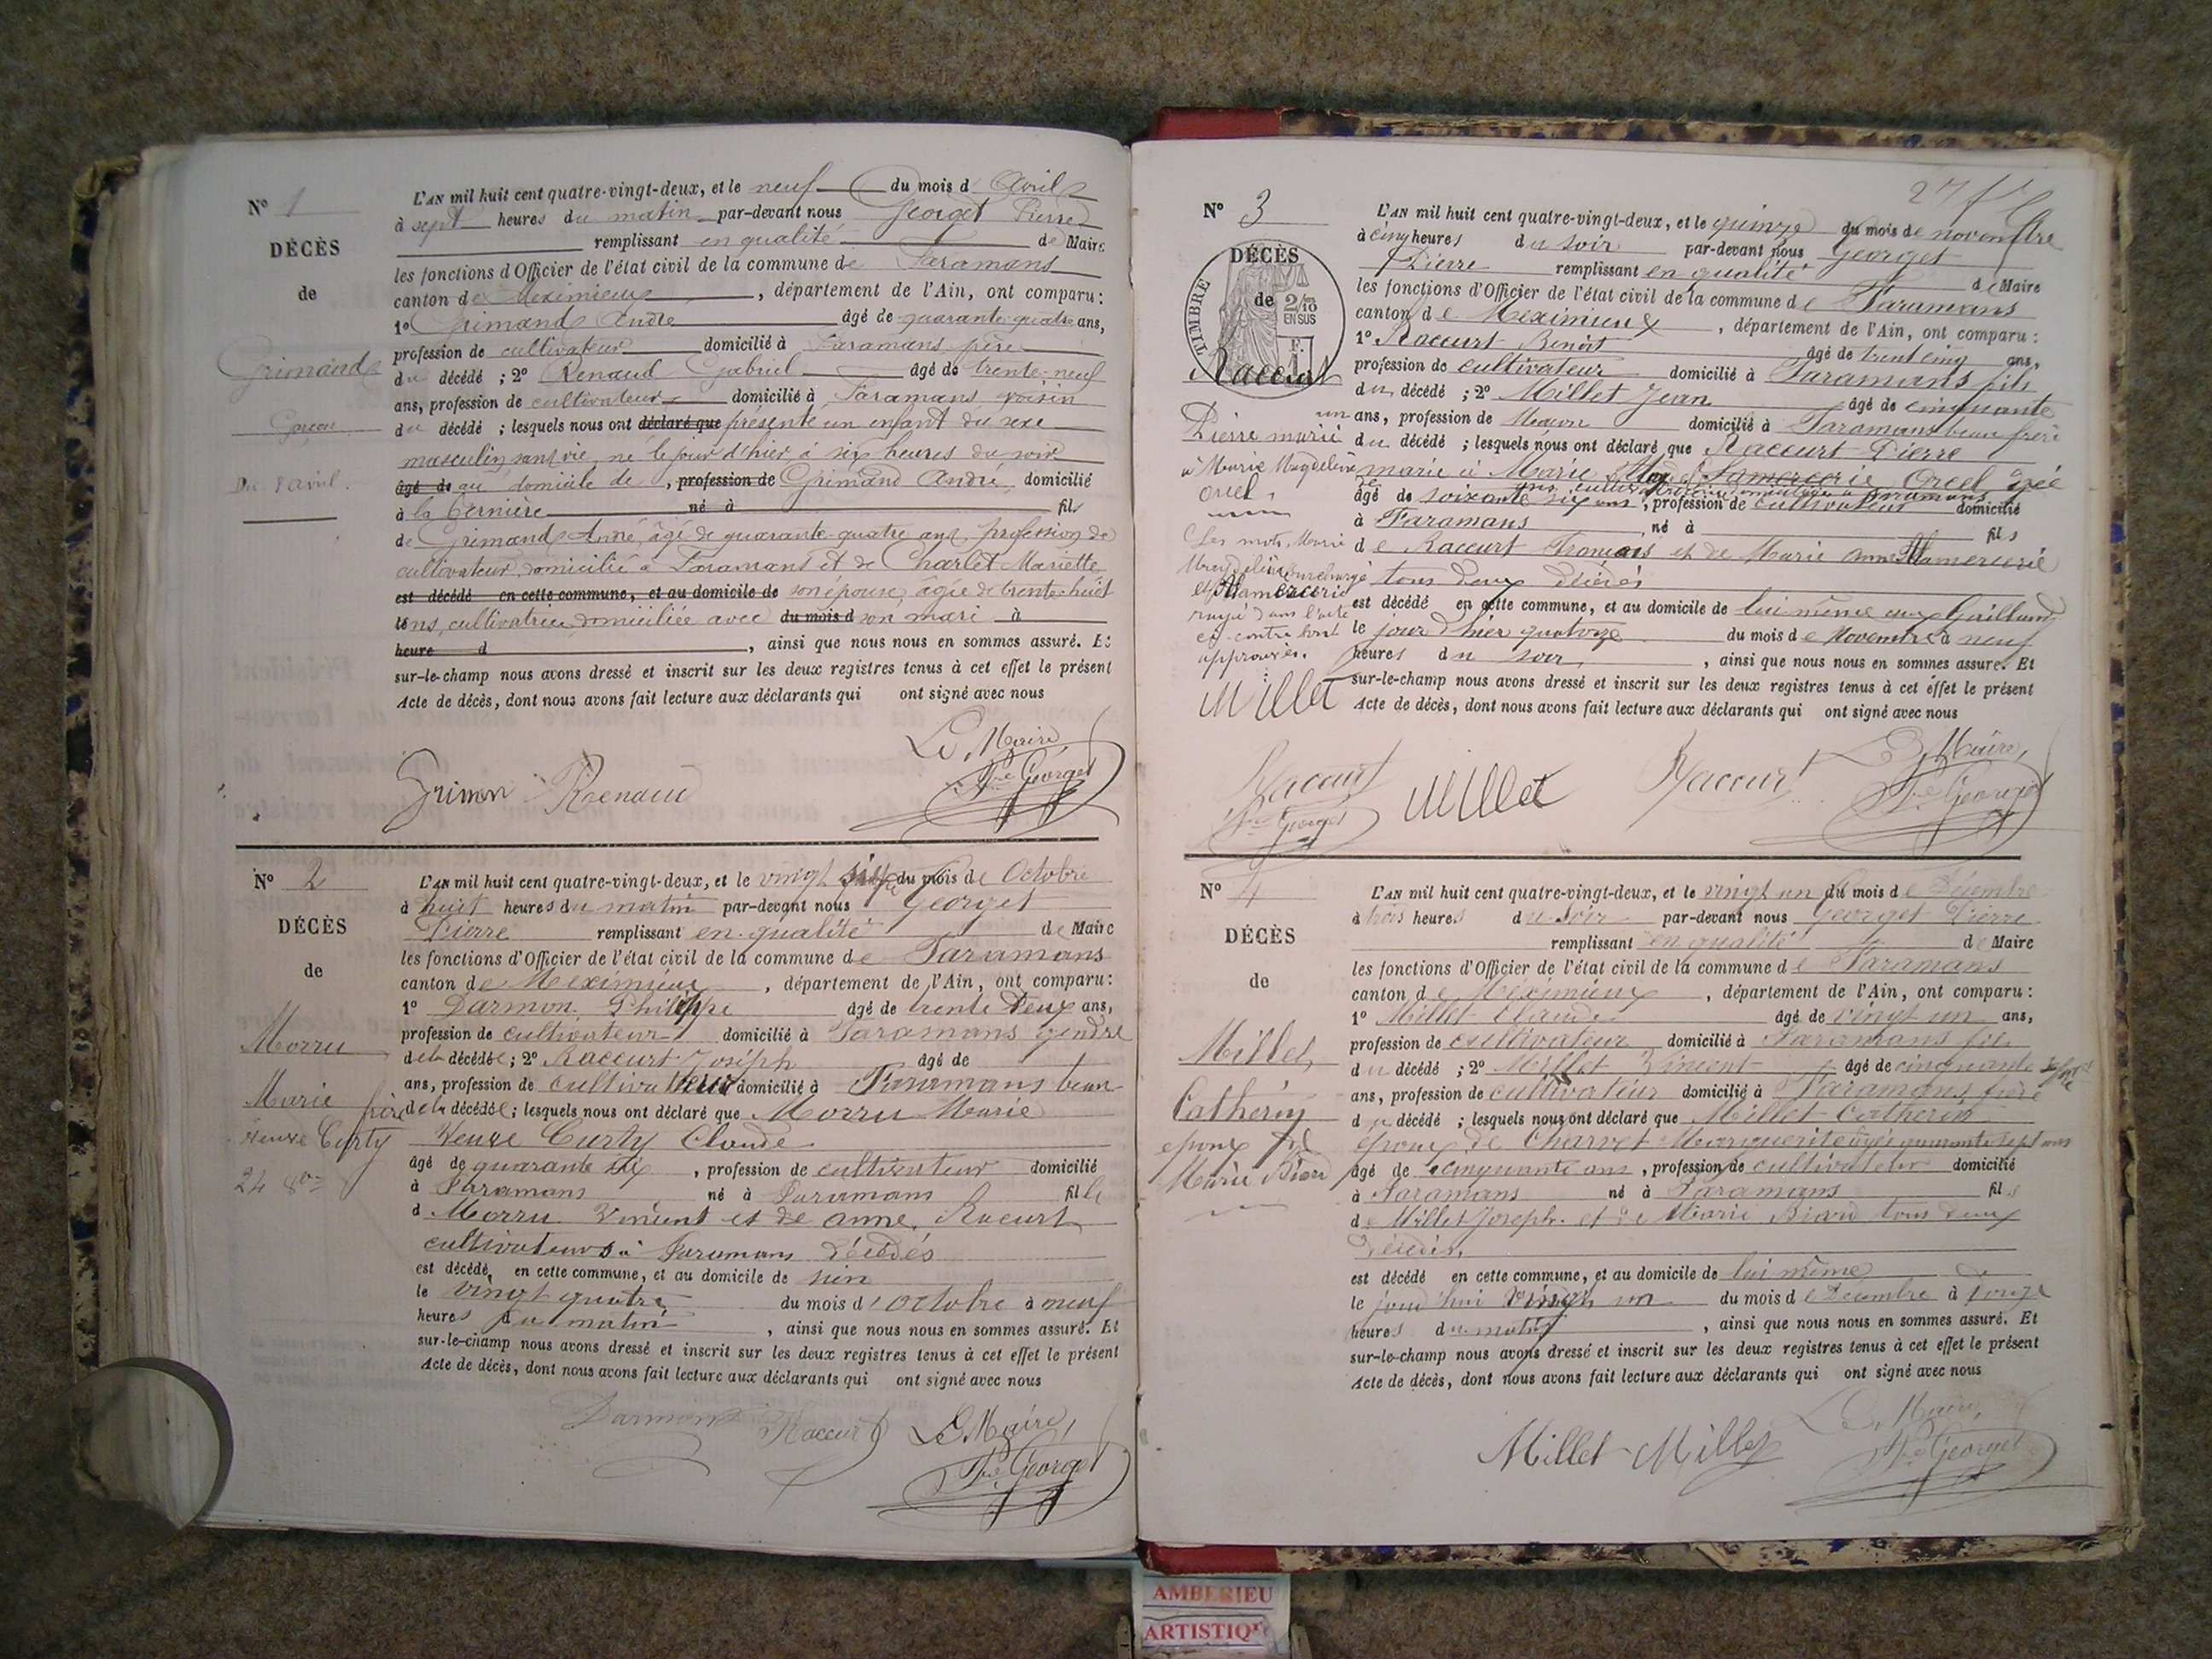 N° 1
DÉCÈS
de
Grimand
Garçon
Du 8 avril.
L'AN mil huit cent quatre-vingt-deux, et le neuf du mois d'Avril
à sept heures du matin par-devant nous Georget Pierre
remplissant en qualité de Maire
les fonctions d'Officier de l'état civil de la commune de Faramans
canton de Meximieux, département de l'Ain, ont comparu:
1° Grimand André âgé de quarante-quatre ans,
profession de cultivateur domicilié à Faramans, père
du décédé ; 2° Renaud Gabriel âgé de trente-neuf
ans, profession de cultivateur domicilié à Faramans voisin
du décédé ; lesquels nous ont déclaré que présenté un enfant du sexe
masculin sans vie, né le jour d'hier à six heures du soir
âgé de au domicile de , profession de Grimand André, domicilié
à la Bernière né à fils
de Grimand André, âgé de quarante-quatre ans, profession de
cultivateur, domicilié à Faramans et de Charlet Mariette
est décédé en cette commune, et au domicile de son épouse, âgée de trente-huit
ans, cultivatrice, domiciliée avec du mois d son mari à
heure d , ainsi que nous nous en sommes assuré. Et
sur-le-champ nous avons dressé et inscrit sur les deux registres tenus à cet effet le présent
Acte de décès, dont nous avons fait lecture aux déclarants qui ont signé avec nous
Grimon Renaud Le Maire,
Pre Georget
N° 2
DÉCÈS
de
Morru
Marie
veuve Curty
24 8bre
L'AN mil huit cent quatre-vingt-deux, et le vingt six du mois de Octobre
à huit heures du matin par-devant nous Georget
Pierre remplissant en qualité de Maire
les fonctions d'Officier de l'état civil de la commune de Faramans
canton de Meximieux, département de l'Ain, ont comparu:
1° Darmon Philippe âgé de trente deux ans,
profession de cultivateur domicilié à Faramans gendre
de la décédée ; 2° Raccurt Joseph âgé de
ans, profession de cultivateur domicilié à Faramans beau
frère de la décédée ; lesquels nous ont déclaré que Morru Marie
Veuve Curty Claude
âgé de quarante six, profession de cultivateur domicilié
à Faramans né à Faramans fille
d Morru Vincent et de anne Racurt
cultivateurs à Faramans décédés
est décédé, en cette commune, et au domicile de sien
le vingt quatre du mois d'octobre à neuf
heures du matin, ainsi que nous nous en sommes assuré. Et
sur-le-champ nous avons dressé et inscrit sur les deux registres tenus à cet effet le présent
Acte de décès, dont nous avons fait lecture aux déclarants qui ont signé avec nous
Darmon Raccurt Le Maire,
Pre Georget
N° 3
DÉCÈS
de
TIMBRE
2/10
EN SUS
Raccurt
Pierre marié
à Marie Magdeleine
Orcel,
Les mots, Marie
Magdeleine surchargé
et Lamercerie
rayé dans l'acte
ci-contre sont
approuvés.
Millet
Raccurt
Pre Georget
L'AN mil huit cent quatre-vingt-deux, et le quinze du mois de novembre
à cinq heures du soir par-devant nous Georget
Pierre remplissant en qualité de Maire
les fonctions d'Officier de l'état civil de la commune de Faramans
canton de Meximieux, département de l'Ain, ont comparu:
1° Raccurt Benoit âgé de trent cinq ans,
profession de cultivateur domicilié à Faramans fils
du décédé ; 2° Millet Jean âgé de cinquante
un ans, profession de Macon domicilié à Faramans beau frère
du décédé ; lesquels nous ont déclaré que Raccurt Pierre
marié à Marie Lamercerie Orcel agée
âgé de soixante six ans, profession de cultivateur domicilié
à Faramans né à fils
de Raccurt François et de Marie anne Lamercerie
tous deux décédés
est décédé en cette commune, et au domicile de lui même aux Gaillard
le jour d'hier quatorze du mois de Novembre à neuf
heures du soir, ainsi que nous nous en sommes assuré. Et
sur-le-champ nous avons dressé et inscrit sur les deux registres tenus à cet effet le présent
Acte de décès, dont nous avons fait lecture aux déclarants qui ont signé avec nous
Millet Raccurt Le Maire,
Pre Georget
N° 4
DÉCÈS
de
Millet
Catherin
epoux de
Marie Biard
L'AN mil huit cent quatre-vingt-deux, et le vingt un du mois de Décembre
à trois heures du soir par-devant nous Georget Pierre
remplissant en qualité de Maire
les fonctions d'Officier de l'état civil de la commune de Faramans
canton de Meximieux, département de l'Ain, ont comparu:
1° Millet Claude âgé de vingt un ans,
profession de cultivateur domicilié à Faramans fils
du décédé ; 2° Millet Vincent âgé de cinquante
ans, profession de cultivateur domicilié à Faramans frère
du décédé ; lesquels nous ont déclaré que Millet Catherin
époux de Charvet Marguerite âgée quarante sept ans
âgé de cinquante ans, profession de cultivateur domicilié
à Faramans né à Faramans fils
de Millet Joseph et de Marie Biard tous deux
décédés,
est décédé en cette commune, et au domicile de lui même
le jour d'hui vingt un du mois de Décembre à onze
heures du matin, ainsi que nous nous en sommes assuré. Et
sur-le-champ nous avons dressé et inscrit sur les deux registres tenus à cet effet le présent
Acte de décès, dont nous avons fait lecture aux déclarants qui ont signé avec nous
Millet Millet Le Maire,
Pre Georget
AMBERIEU
ARTISTIQUE